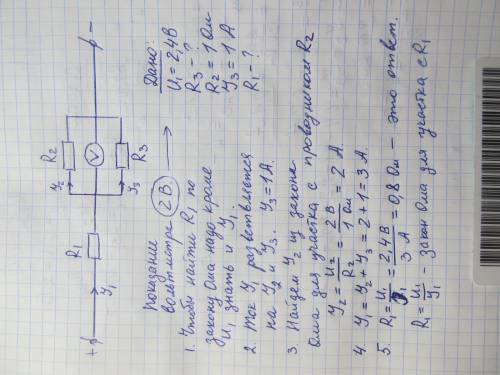 +
-
R₁
I₁
R₂
I₂
V
R₃
I₃
Дано:
U₁=2,4В
R₃ - ?
R₂=1 Ом
I₃=1 А
R₁ - ?
Показание
вольтметра 2В →
1. Чтобы найти R₁ по
закону Ома надо кроме
U₁ знать и I₁.
2. Ток I₁ разветвляется
на I₂ и I₃. I₃=1А.
3. Найдем I₂ из закона
Ома для участка с проводником R₂
I₂ = U₂/R₂ = 2 В/1 Ом = 2 А.
4. I₁=I₂+I₃=2+1=3 А.
5. R₁ = U₁/I₁ = 2,4 В/3 А = 0,8 Ом — это ответ.
R₁ = U₁/I₁ - закон Ома для участка с R₁